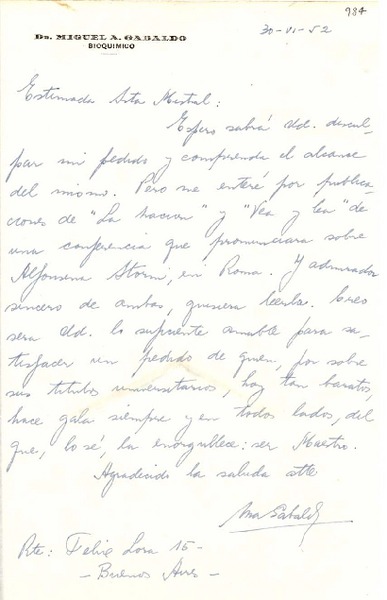 984
Dr. MIGUEL A. GABALDO
BIOQUIMICO
30-VI-52
Estimada Srta Mistral:
Espero sabrá Ud. discul-
par mi pedido y comprenda el alcance
del mismo. Pero me enteré por publica
ciones de "La Nacion" y "Vea y lea" de
una conferencia que pronunciara sobre
Alfonsina Storni, en Roma. Y admirador
sincero de ambas, quisiera leerla. Creo
sera Ud. lo suficiente amable para sa-
tisfacer un pedido de quien, por sobre
sus titulos universitarios, hoy tan baratos,
hace gala siempre y en todos lados, del
que, lo sé, la enorgullece: ser Maestro.
Agradecido la saluda atte
MAGabaldo
Rte: Felix Lora 15-
- Buenos Aires -